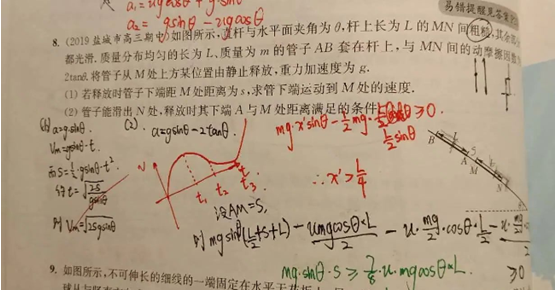 a₁=ugcosθ+gsinθ
易错提醒见答案
a₂=gsinθ-ugcosθ
8. (2019盐城市高三期中)如图所示,直杆与水平面夹角为θ,杆上长为L的MN间粗糙,其余部分
都光滑.质量分布均匀的长为L、质量为m的管子AB套在杆上,与MN间的动摩擦因数
2tanθ.将管子从M处上方某位置由静止释放,重力加速度为g.
(1) 若释放时管子下端距M处距离为s,求管下端运动到M处的速度.
(2) 管子能滑出N处,释放时其下端A与M处距离满足的条件.
(1) a=gsinθ.
Vm=gsinθ·t.
而S=½·gsinθ·t²
得t=√(2S/gsinθ)
则Vm=√(2Sgsinθ)
(2) a=gsinθ-2tanθ.
V
t₁ t₂ t₃
mg·x'sinθ-½mg·½sinθ≥0.
∴x'>L/4
设AM=S,
则mgsinθ(L/2+S+L)-umgcosθ×L/2-u·mg/2·cosθ·L/2-u·mg
≥0
mg·sinθ·S≥7/8·u·mgcosθ×L.
B A M S N
9. 如图所示,不可伸长的细线的一端固定在水平天花板上